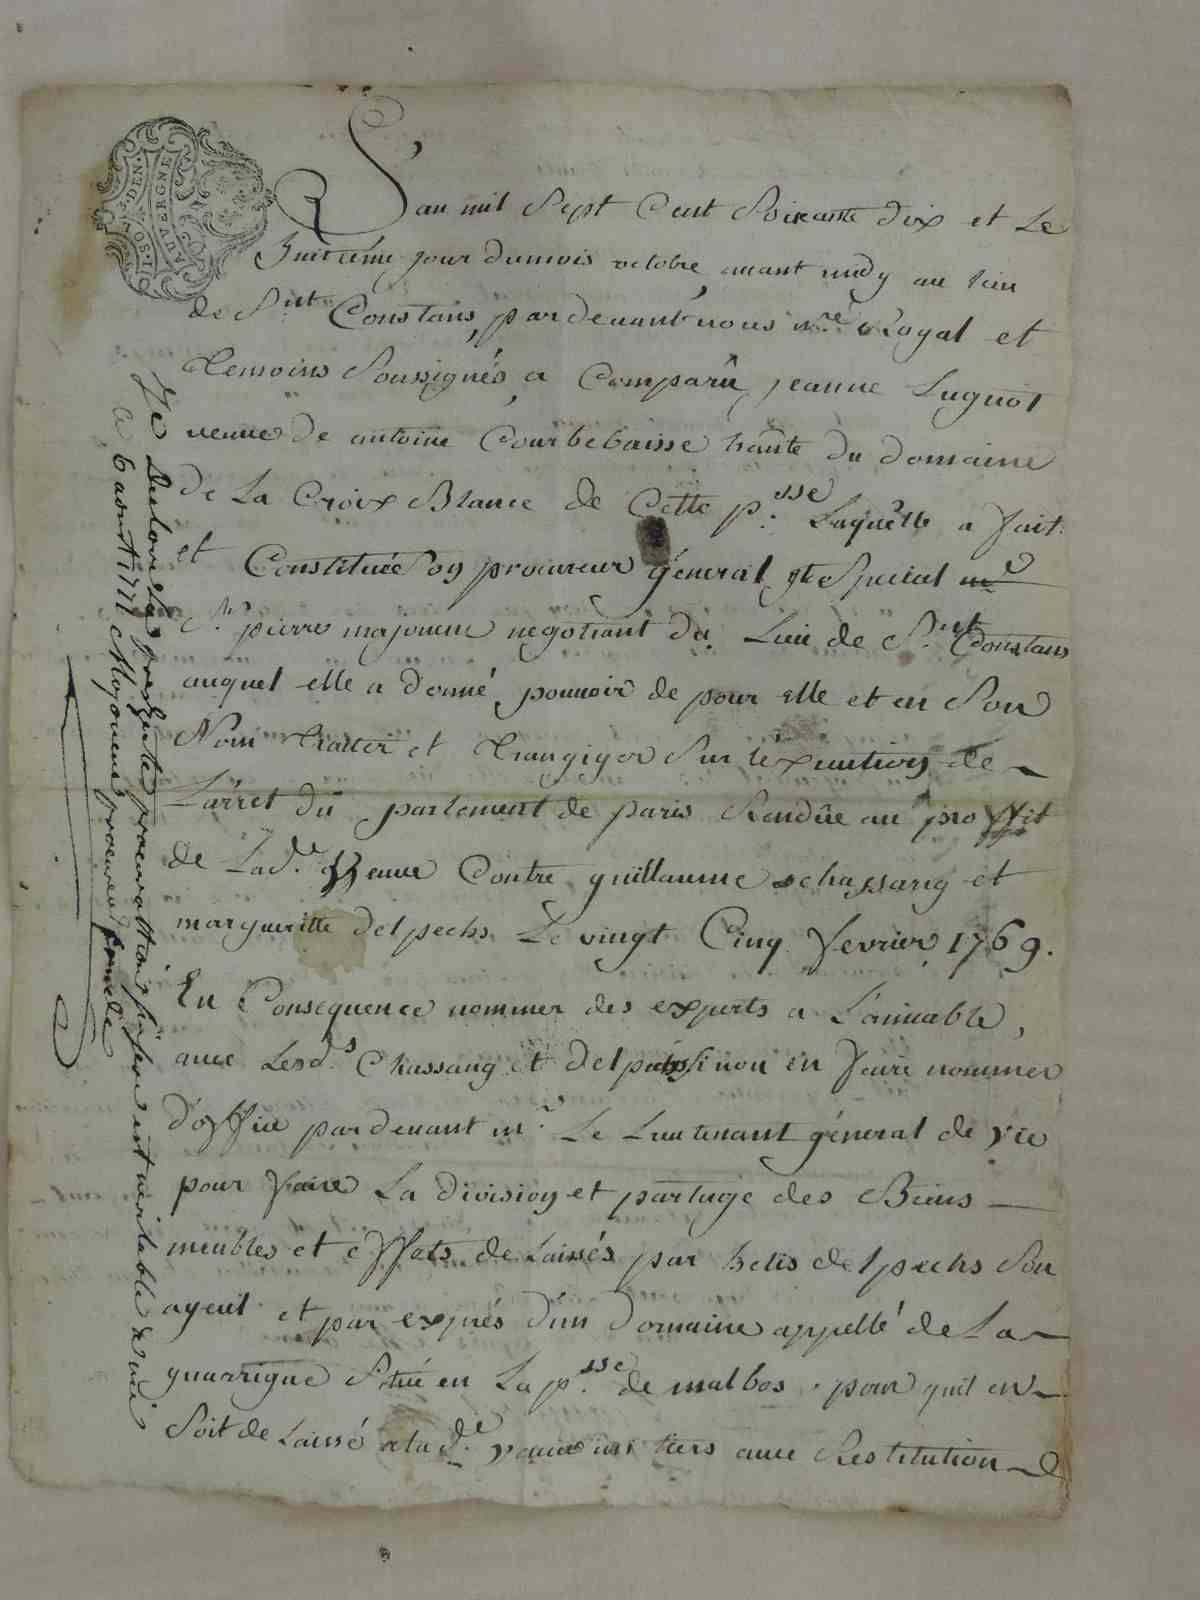 AUVERGNE
L'an mil Sept Cent Soixante dix et Le
huitiéme jour du mois octobre, auant midy au lieu
de St Constans, par deuant nous nre Royal et
temoins Soussignés, a Comparû, jeanne Lugnot
veuue de antoine Courbebaisse hante du domaine
de La Croix Blance de Cette p.sse Laquelle a fait
et Constitué Son procureur général et Special
Sr pierre majouem negotiant du Lieu de St Constans
auquel elle a donné pouuoir de pour elle et en Son
Nom traiter et transiger Sur léxecution de
L'arret du parlement de paris Rendûe au proffit
de Lad.e Veuue Contre guillaume chassang et
margueritte delpechs Le vingt Cinq fevrier 1769.
En Consequence nommer des experts a L'amiable,
auec Lesd.s Chassang et delpechs Sinon en faire nommer
d'office par deuant mr Le Lieutenant géneral de vic
pour faire La division et partage des Biens
meubles et effets de Laissés par helis delpechs Son
ayeul et par exprés d'un domaine appellé de La
guarrigue Situé en La p.sse de malbos pour quil en
Soit de Laissé a la d.e veuue un tiers auec Restitution d
Je Declare La presente procuration
est veritable
Le 6 aout 1771 Majouem procureur